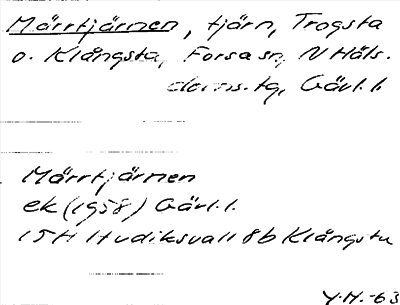 Märrtjärnen, tjärn, Trogsta
o. Klångsta, Forsa sn, N Häls.
doms. tg, Gävl. l.
Märrtjärnen
ek (1958) Gävl. l.
15H Hudiksvall 8b Klångsta
Y.H.-63